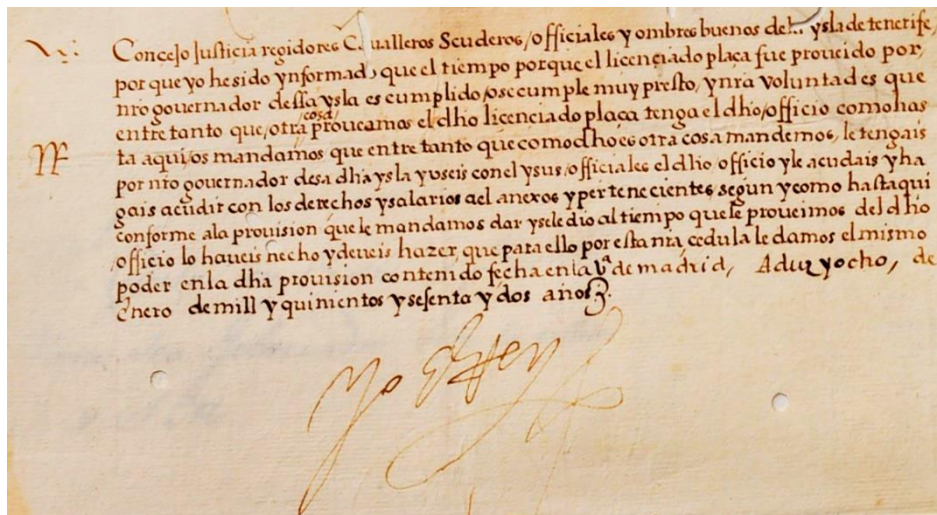 Concejo Justicia regidores Cavalleros Scuderos, officiales y ombres buenos dela ysla de tenerife,
por que yo he sido ynformado que el tiempo porque el licenciado plaça fue proueido por,
nro governador dessa ysla es cumplido, o se cumple muy presto, y nra voluntad es que
cosa
entre tanto que, otra, proueamos el dho licenciado plaça tenga el dho, officio como has
ta aqui, os mandamos que entre tanto que como dho es otra cosa mandemos, le tengais
por nro governador desa dha ysla y useis con el y sus, officiales el dho officio y le acudais y ha
gais acudir con los derechos y salarios a el anexos y pertenecientes segun y como hasta qui
conforme a la prouision que le mandamos dar y se le dio al tiempo que le proueimos del dho
officio lo haueis hecho y deueis hazer, que para ello por esta nra cedula le damos el mismo
poder en la dha prouision contenido fecha en la va de madrid, A diez y ocho, de
Enero de mill y quinientos y sesenta y dos años
Yo el Rey